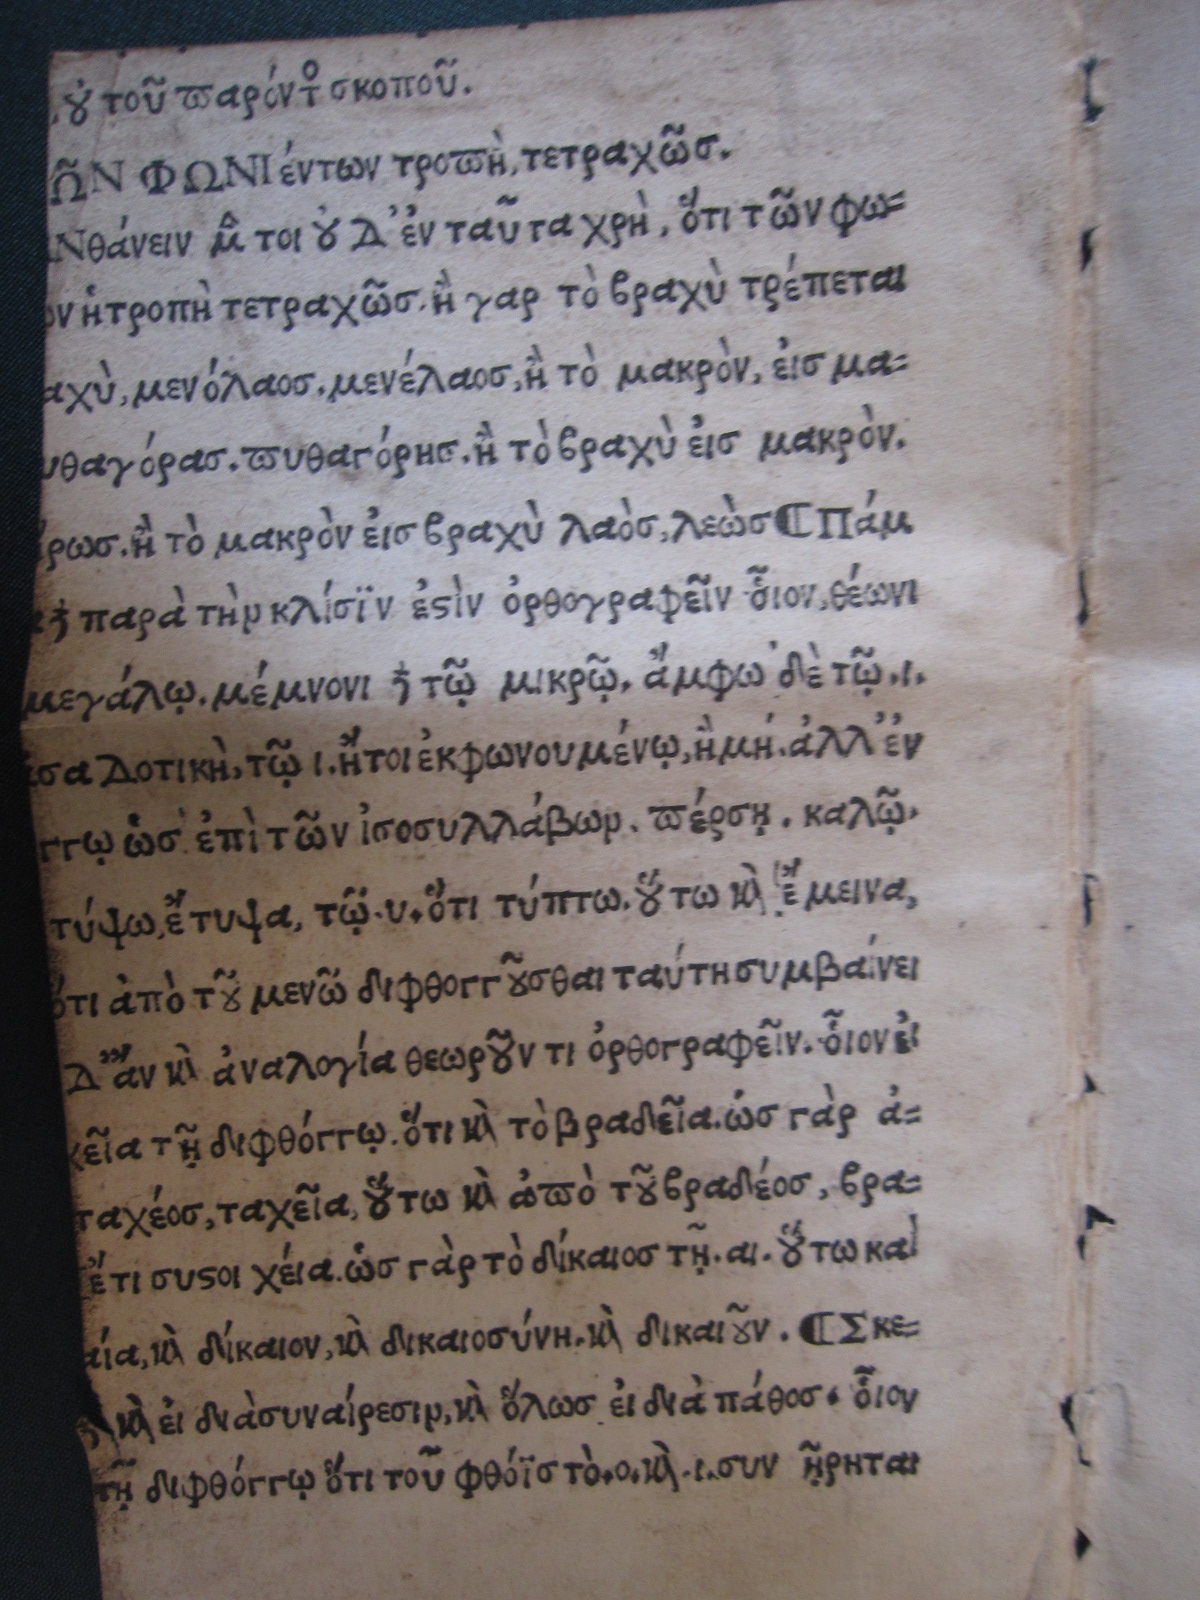 οὐ τοῦ παρόντος σκοποῦ.
ῶΝ ΦΩΝΙέντων τροπὴ, τετραχῶσ.
Νθάνειν μέντοι οὐδ' ἐνταῦτα χρὴ, ὅτι τῶν φω=
ον ἡ τροπὴ τετραχῶσ. ἢ γαρ τὸ βραχὺ τρέπεται
αχὺ, μενόλαοσ. μενέλαοσ, ἢ τὸ μακρὸν, ἐισ μα=
υθαγόρασ. πυθαγόρησ. ἢ τὸ βραχὺ ἐισ μακρὸν.
ρωσ. ἢ τὸ μακρὸν ἐισ βραχὺ λαὸσ, λεὼσ ¶ Πάμ
παρὰ τὴν κλίσϊν ἐϛὶν ὀρθογραφεῖν οἷον, θέωνι
μεγάλῳ. μέμνονι τῷ μικρῷ. ἄμφω δὲ τῷ. ι.
σα Δοτικὴ, τῷ ι. ἤτοι ἐκφωνουμένῳ, ἢ μή. ἀλλ' ἐν
γγῳ ὡσ ἐπὶ τῶν ἰσοσυλλάβων. πέρσῃ. καλῷ.
τύψω, ἔτυψα, τῷ. υ. ὅτι τύπτω. οὕτω κὶ ἔμεινα,
ὅτι ἀπὸ τοῦ μενῶ διφθογγοῦσθαι ταύτη συμβαίνει
Δ' ἂν κὶ ἀναλογία θεωροῦν τι ὀρθογραφεῖν. οἷον ἐι
χεῖα τῇ διφθόγγῳ. ὅτι κὶ τὸ βραδεῖα. ὡσ γὰρ ἀ=
ταχέοσ, ταχεῖα, οὕτω κὶ ἀπὸ τοῦ βραδέοσ, βρα=
ἔτι συϛοι χέια. ὡσ γὰρ τὸ δίκαιοσ τῇ. αι. οὕτω καὶ
αία, κὶ δίκαιον, κὶ δικαιοσύνη. κὶ δικαιοῦν. ¶ Σκε=
κὶ ἐι διὰ συναίρεσιν, κὶ ὅλωσ ἐι διὰ πάθοσ. οἷον
τῇ διφθόγγῳ ὅτι τοῦ φθόϊσ τὸ. ο. κὶ. ι. συν ῄρηται